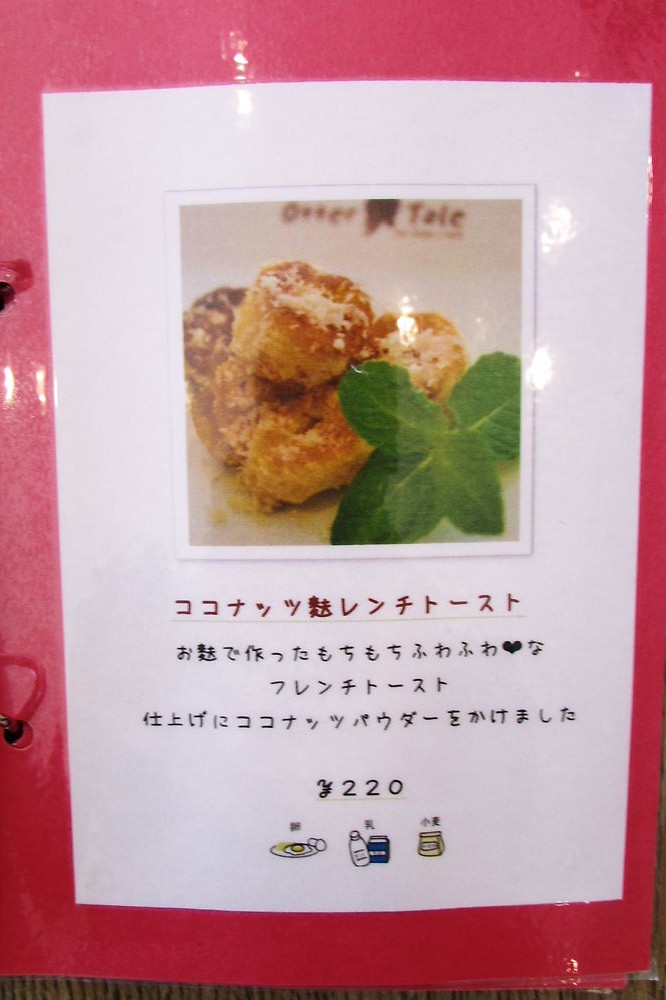 Tale
ココナッツ麩レンチトースト
お麩で作ったもちもちふわふわ❤な
フレンチトースト
仕上げにココナッツパウダーをかけました
¥220
卵 乳 小麦